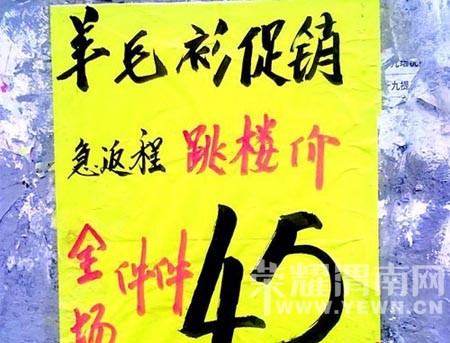 羊毛衫促销
急返程 跳楼价
全场 件件 45
荣耀渭南网
WWW.YEWN.CN